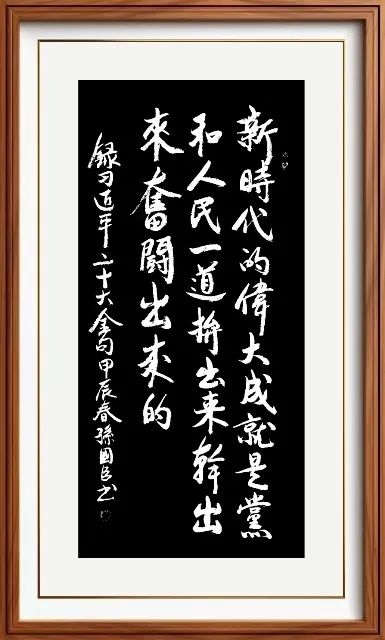 新時代的偉大成就是黨
和人民一道拚出來幹出
來奮鬪出来的
録习近平二十大金句甲辰春孫國良书